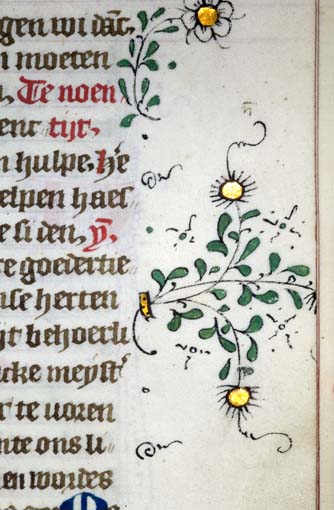 gen wi dāt.
n moeten
n, Te noen
ent tijt.
n hulpe. He
elpen haes
e si den, ꝟ.
te goedertie
nse herten
ijt behoerli
cke meystʼ
rʼ te uoren
nte ons li
en wordes